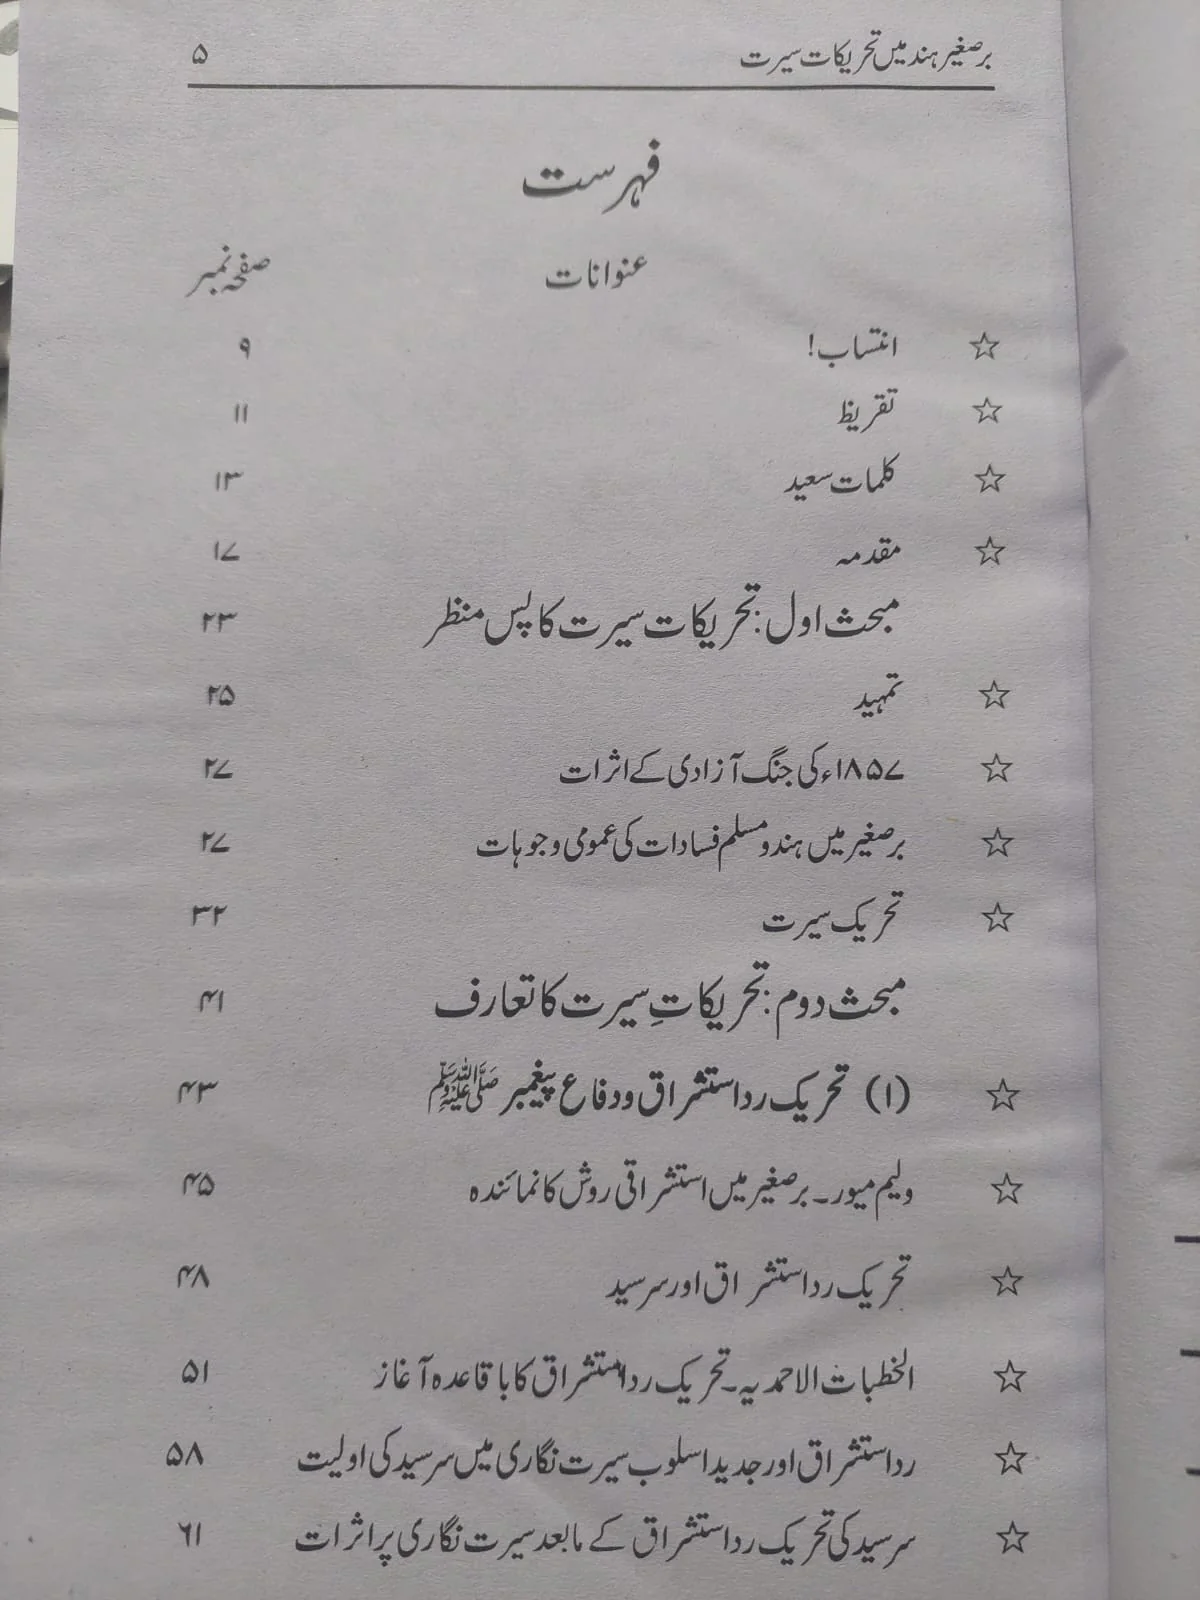 برصغیر ہند میں تحریکات سیرت ۵
فہرست
عنوانات صفحہ نمبر
☆ انتساب! ۹
☆ تقریظ ۱۱
☆ کلمات سعید ۱۳
☆ مقدمہ ۱۷
مبحث اول: تحریکات سیرت کا پس منظر ۲۳
☆ تمہید ۲۵
☆ ۱۸۵۷ء کی جنگ آزادی کے اثرات ۲۷
☆ برصغیر میں ہندو مسلم فسادات کی عمومی وجوہات ۲۷
☆ تحریک سیرت ۳۲
مبحث دوم: تحریکاتِ سیرت کا تعارف ۴۱
☆ (۱) تحریک رد استشراق و دفاع پیغمبر ﷺ ۴۳
☆ ولیم میور۔ برصغیر میں استشراقی روش کا نمائندہ ۴۵
☆ تحریک رد استشراق اور سرسید ۴۸
☆ الخطبات الاحمدیہ۔ تحریک رد استشراق کا باقاعدہ آغاز ۵۱
☆ رد استشراق اور جدید اسلوب سیرت نگاری میں سرسید کی اولیت ۵۸
☆ سرسید کی تحریک رد استشراق کے مابعد سیرت نگاری پر اثرات ۶۱